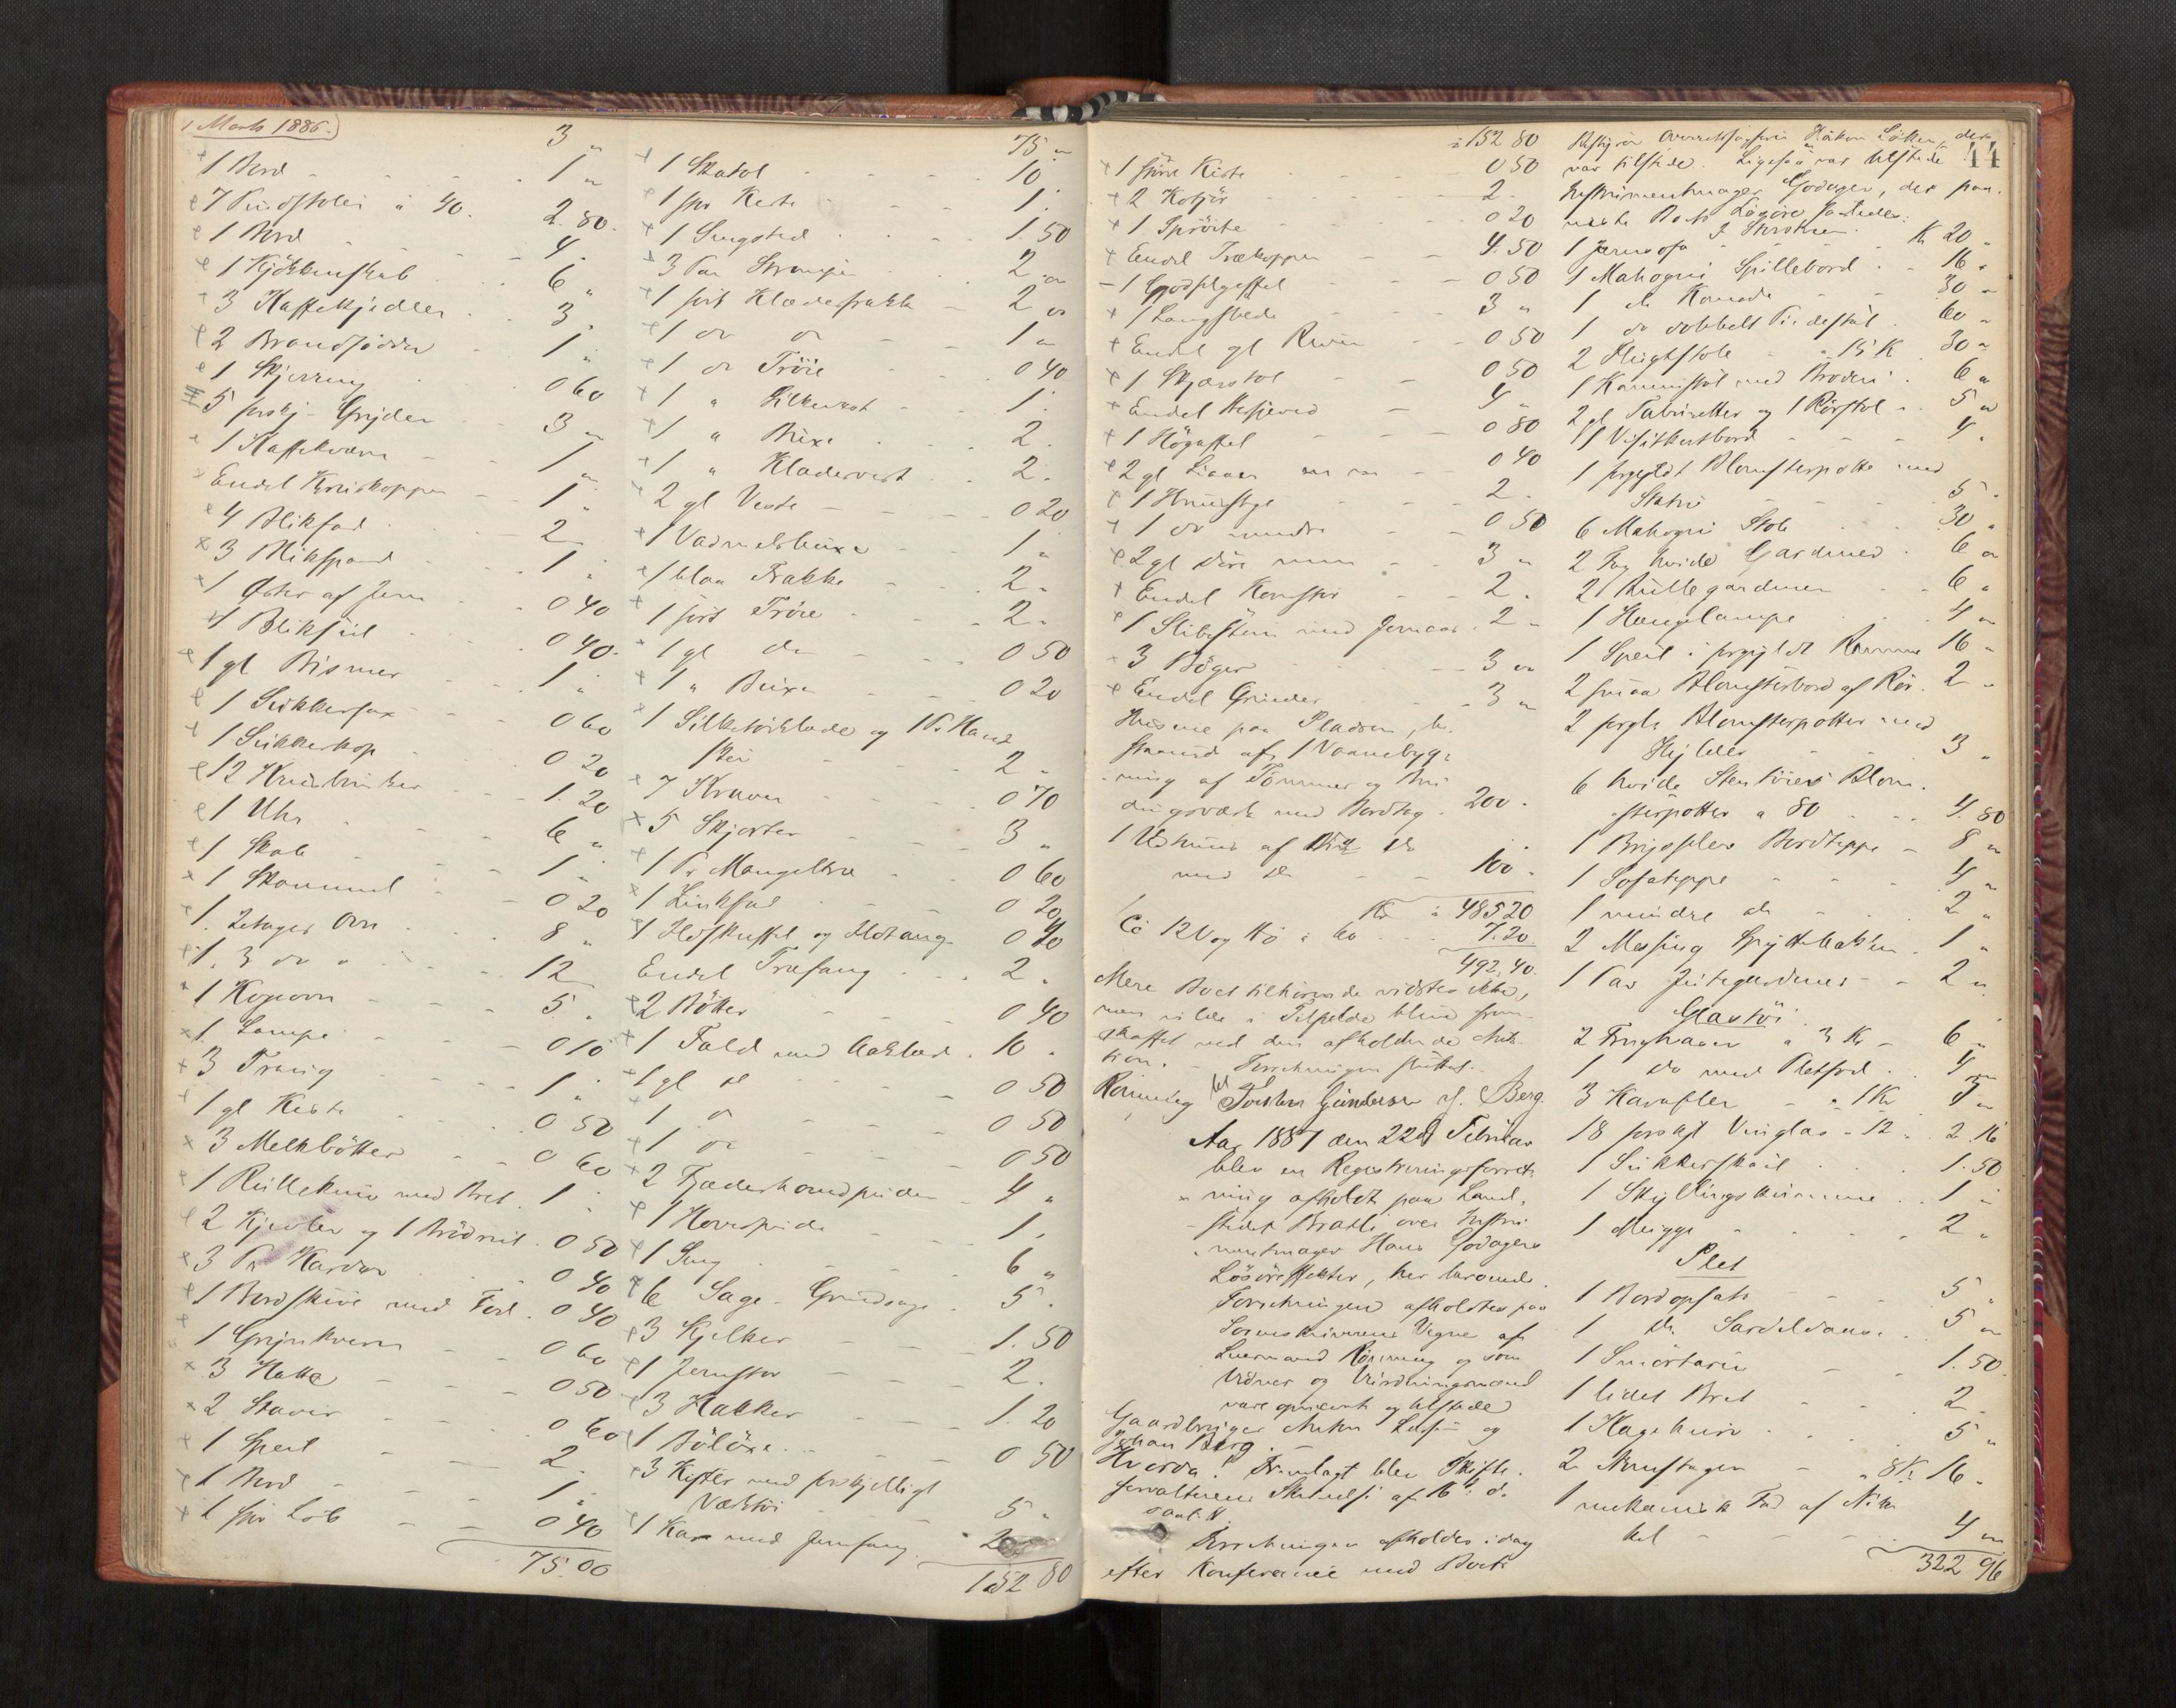 1 Marts 1886.
3 "
1 Bord 1 "
7 Pindstoler a 40. 2.80.
1 Bord 4.
1 Kjökkenskab 6 "
3 Kaffekjedler 3.
2 Brandjödder 1 "
1 Skjerring 0 60
5 forskj. Gryder 3 "
1 Kaffekværn 1 "
Endel Kruskopper 1 "
4 Blikfad 2
3 Blikspand 1 "
1 Øster af Jern 0 40
4 Blikfiel 0 40.
1 gl Bismer 1 "
1 Sukkersax 0 60
1 Sukkerkop 0 20
12 1.20
1 Uhr 6 "
1 Skab 1 "
1 Skammel 0 20
1. 2etages Ovn 8 "
1. 3 do " 12
1 Kogeovn 5. "
1 Lampe 0 10
3 Traug 1 "
1 gl Kiste 0 50
3 Melkbötter 0 60
1 Rullekniv med Bret. 1 "
2 Kjevler og 1 Brödspid. 0 50
3 Pr Karder 0 40
1 Bordskive med Fod. 0 40
1 Grynkvern 0 60
3 Hakke 0 50
2 Stavir 0 60
1 Speil 2.
1 Bord 1 "
1 0 40
75.00
75 "
1 Skatol 10
1 Kiste 1.
1 Sengsted 1.50
3 Par Strömper 2. "
1 sort Klædesfrakke 2 "
1 do do 1 "
1 do Tröie 0 40
1 " Silkevest 1.
1 " Buxe 2.
1 " Klædesvest 2.
2 gl Veste 0 20
1 Vadmelsbuxe 1 "
1 blaa Frakke 2 "
1 sort Tröie 2 "
1 gl do 0 50
1 " Buxe 0 20
1 Silketörklæde og 1 Pr Hand
sker 2 "
7 Kraver 0 70
5 Skjorter 3 "
1 Pr Mangeltræ 0 60
1 Zinkfad 0 20
1 Ildskuffel og Ildtang 0 40
Endel Træfang 2 "
2 Bötter 0 40
1 Fæld med Aaklæd. 10 "
1 gl do 0 50
1 do 0 50
1 do 0 50
2 Fjæderhovedpuder 4 "
1 Hovedpude 1.
1 Seng 6 "
6 Sage. Grindsage. 5 "
3 Kjelker 1.50
1 Jernstör 2.
3 Hakker 1.20
1 Bölöxe 0 50
3 Kister med forskjelligt
Værktöi 5 "
1 Kar med Jernfang. 2
152 80
152 80
1 större Kiste 0 50
2 Kofjör 2 "
1 Spröite 0 20
Endel Trækopper 4.50
1 Gjödselgaffel 0 50
1 Langslede 3 "
Endel gl Reier 0 50
1 Skjærstol 0 50
Endel Hesjeved 4 "
1 Högaffel 0 80
2 gl Liaaer 0 40
1 2.
1 do mindre 0 50
2 gl 3 "
Endel Kornsper 2.
1 Slibesten med Jernaas. 2 "
3 Böger 3 "
Endel Grinder 3 "
Husene paa Pladsen, be-
staaende af, 1 Vaanebyg-
ning af Tömmer og Bin
dingsværk med Bordtag. 200.
1 Udhuus af do
med do 100.
Kr. 485 20
Co KV og Kö a 60 7.20
492.40.
Mere Boet tilhörende vidstes ikke,
men vilde i Tilfælde blive frem-
skaffet ved den afholdende Auk-
tion. Forretningen sluttet.
Rönning Torsten Gundersen Berg.
Aar 1887 den 22de Februar
blev en Registreringsforret-
ning afholdt paa Land-
stedet Bratli over Instru-
mentmager Hans Godagers
Lösöreffekter, her beroende.
Forretningen afholdtes paa
Sorenskriverens Vegne af
Lensmand Rönning og som
Vidner og Vurderingsmænd
vare opnævnt og tilstede
Gaardbruger Anton og
Johan Berg.
Hvorda: Fremlagt blev Skifte-
forvalterens Skrivelse af 16 d.
saal. #
Forretningen afholdes idag
efter Konferance med Boets
44
Bestyrer Overretssagförer Haakon Löken, der
var tilstede. Ligesaa var tilstede
Instrumentmager Godager, der paa-
viste Boets Lösöre saaledes:
I Storstuen.
1 Jernsofa Kr 20 "
1 Mahogni Spillebord 16 "
1 do Komode 30 "
1 do dobbelt Pindestol 60 "
2 Flugtstole a 15 K 30 "
1 Kaminstol med Broderi 6 "
2 gl Taburetter og 1 Rörstol 5 "
1 Visitkortbord 4 "
1 forgyldt Blomsterpotte med
Stativ 5 "
6 Mahogni Stole 30 "
2 Fag hvide Gardiner 6 "
2 Rullegardiner 6 "
1 Hængelampe 4 "
1 Speil i forgyldt Ramme 16 "
2 smaa Blomsterbord af Rör. 2 "
2 forgk Blomsterpotter med
Hylder 3 "
6 hvide Stentöies Blom-
sterpotter a 80 4.80
1 Brysseler Bordteppe 8 "
1 Sofateppe 4 "
1 mindre do 2 "
2 Messing Spyttebakker 1 "
1 Par Jutegardiner 2 "
Glastöi
2 Frugtvaser a 3 Kr 6 "
1 do med Pletfod 4 "
3 Karafler a 1 Kr 3 "
18 forskjl Vinglas a 12 2.16
1 Sukkerskaal 1.50
1 Skyllingskumme 1 "
1 Mugge 2 "
Plet
1 Bordopsats 5 "
1 do Sardeldaase 5 "
1 Smörtarin 1.50
1 lidet Bret 2 "
1 Kagekurv 5 "
2 Armstager a 8 Kr 16 "
1 mekanisk Fad af Nik-
kel 4 "
322 96